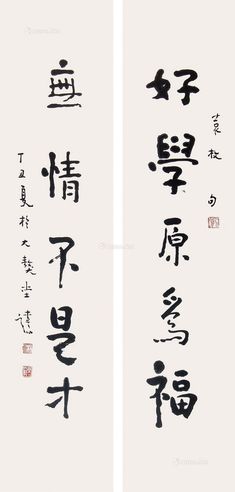 好學原為福
袁枚句
無情不是才
丁丑夏於大熬堂